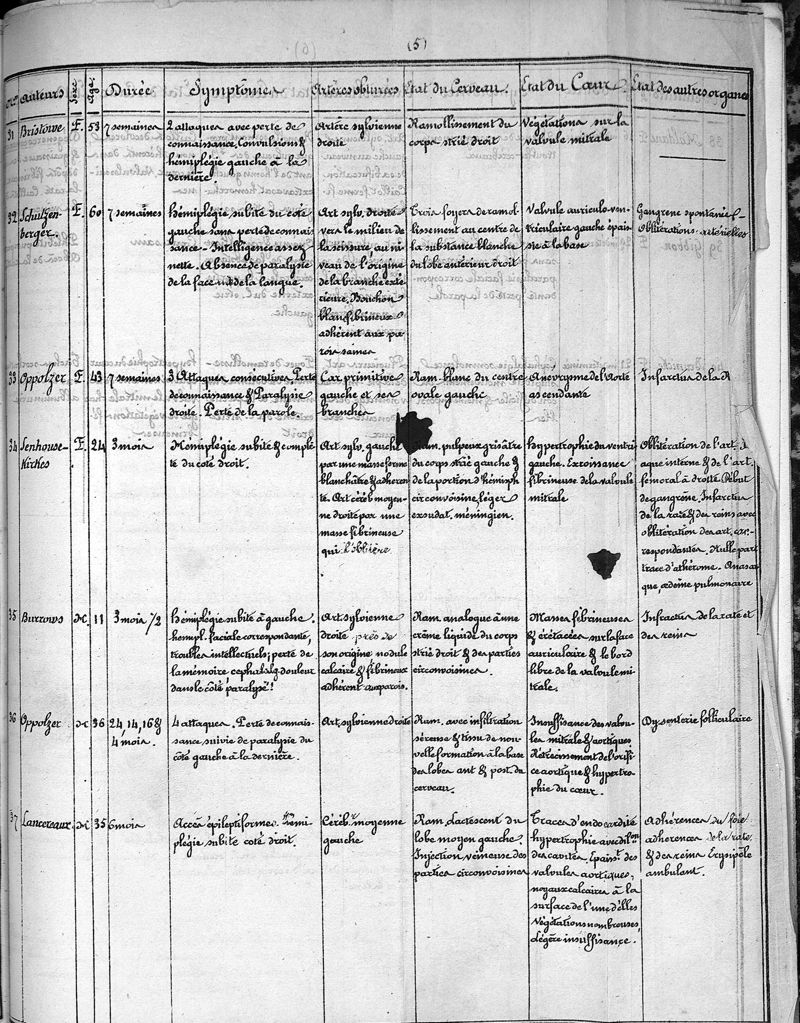 (5)
Auteurs Sexe Age Durée Symptômes Artères obturées Etat du Cerveau. Etat du Cœur. Etat des autres organes
31 Bristowe F. 53 7 semaines
2 attaques avec perte de
connaissance, Convulsions &
hémiplégie gauche à la
dernière.
Artère sylvienne
droite
Ramollissement du
corps strié droit
Végétations sur la
valvule mitrale
32 Schutzen-
berger.
F. 60 7 semaines
hémiplégie subite du coté
gauche sans perte de connais
sance - Intelligence assez
nette. Absence de paralysie
de la face et de la langue.
Art. sylv. droite
vers le milieu de
la scissure, au ni
veau de l'origine
de la branche exté
rieure. Bouchon
blanc fibrineux
adhérent aux pa
rois saines
Trois foyers de ramol
lissement au centre de
la substance blanche
du lobe antérieur droit
Valvule auriculo-ven-
triculaire gauche épais
sie à la base
Gangrène spontanée -
Oblitérations artérielles
33 Oppolzer F. 43 7 semaines
3 Attaques consécutives. Perte
de connaissance & Paralysie
droite. Perte de la parole.
Car. primitive
gauche et ses
branches
Ram. blanc du centre
ovale gauche
Anévrysme de l'aorte
ascendante
Infarctus de la R
34 Senhouse-
Kirkes
F. 24 3 mois
Hémiplégie subite & complè
te du coté droit.
Art. sylv. gauche
par une masse ferme
blanchâtre & adhéren
te. Art. céréb. moyen-
ne droite par une
masse fibrineuse
qui l'oblitère
Ram. pulpeux grisâtre
du corps strié gauche &
de la portion d'hémisph
circonvoisine, léger
exsudat. méningien.
hypertrophie du ventri
gauche. Excroissance
fibrineuse de la valvule
mitrale
Oblitération de l'art. il
aque interne & de l'art.
fémoral à droite. Début
de gangrène. Infarctus
de la rate & des reins avec
oblitération des art. cor-
respondantes. Nulle part
trace d'athérome. Anasar
que, œdème pulmonaire
35 Burrows H. 11 3 mois 1/2
hémiplégie subite à gauche.
hémipl. faciale correspondante,
troubles intellectuels; perte de
la mémoire cephalalg. douleur
dans le côté paralysé!
Art. sylvienne
droite près de
son origine nodule
calcaire & fibrineux
adhérent aux parois.
Ram. analogue à une
crème liquide du corps
strié droit & des parties
circonvoisines.
Masses fibrineuses
& crétacées sur la face
auriculaire & le bord
libre de la valvule mi-
trale.
Infarctus de la rate et
des reins
36 Oppolzer H. 36 24, 14, 16 &
4 mois.
4 attaques. Perte de connais-
sance suivie de paralysie du
côté gauche à la dernière.
Art. sylvienne droite
Ram. avec infiltration
séreuse & tissu de nou
velle formation à la base
des lobes ant & post. du
cerveau.
Insuffisance des valvu-
les mitrale & aortiques
Rétrécissement de l'orifi
ce aortique & hypertro-
phie du cœur.
Dysenterie folliculaire
37 Lancereaux H. 35 6 mois
Accès épileptiformes. Hémi
plégie subite coté droit.
Céréb.le moyenne
gauche
Ram. lactescent du
lobe moyen gauche.
Injection veineuse des
parties circonvoisines
Traces d'endocardite
hypertrophie avec dilon
des cavités. Epaist des
valvules aortiques,
noyaux calcaires à la
surface de l'une d'elles
Végétations nombreuses,
légère insuffisance.
Adhérences du foie
adherences de la rate
& des reins Erysipèle
ambulant.